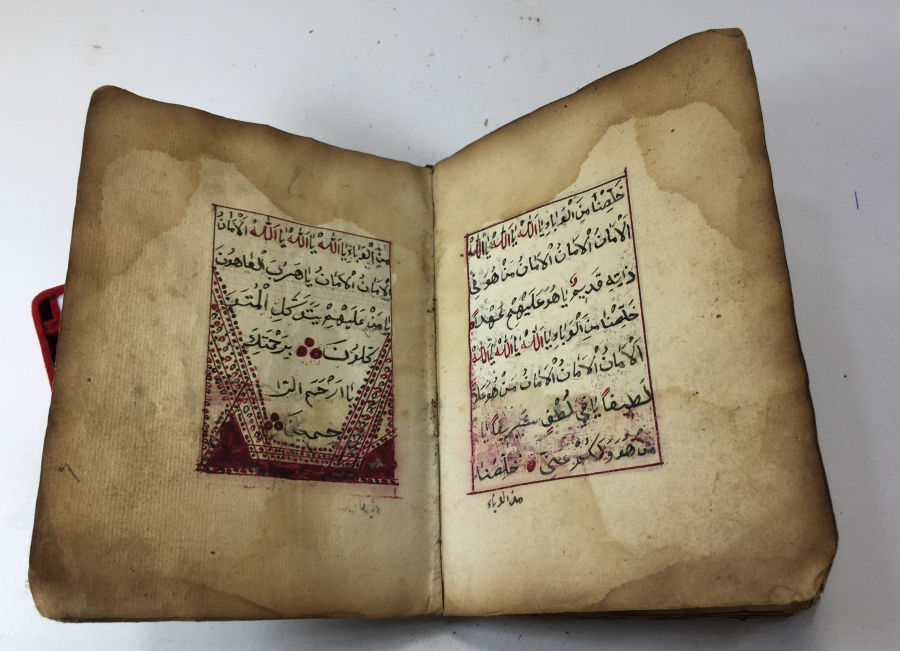 خَلِّصْنَا مِنَ الْوَبَاءِ يَا اَللّٰهُ يَا اَللّٰهُ يَا اَللّٰهُ
اَلْاَمَانُ اَلْاَمَانُ اَلْاَمَانُ مَنْ هُوَ فِي
ذَاتِهِ قَدِيمٌ يَا هُوَ عَلَيْهِمْ
خَلِّصْنَا مِنَ الْوَبَاءِ يَا اَللّٰهُ يَا اَللّٰهُ يَا اَللّٰهُ
اَلْاَمَانُ اَلْاَمَانُ اَلْاَمَانُ مَنْ هُوَ
لَطِيفاً يَا فِي لُطْفٍ
خَلِّصْنَا
من الوباء
مِنَ الْوَبَاءِ يَا اَللّٰهُ يَا اَللّٰهُ يَا اَللّٰهُ اَلْاَمَانُ
اَلْاَمَانُ اَلْاَمَانُ يَا
يَا مَنْ عَلَيْهِمْ يَتَوَكَّلِ الْمُتَوَ
كِّلُونَ بِرَحْمَتِكَ
يَا اَرْحَمَ الرَّا
حِمِينَ